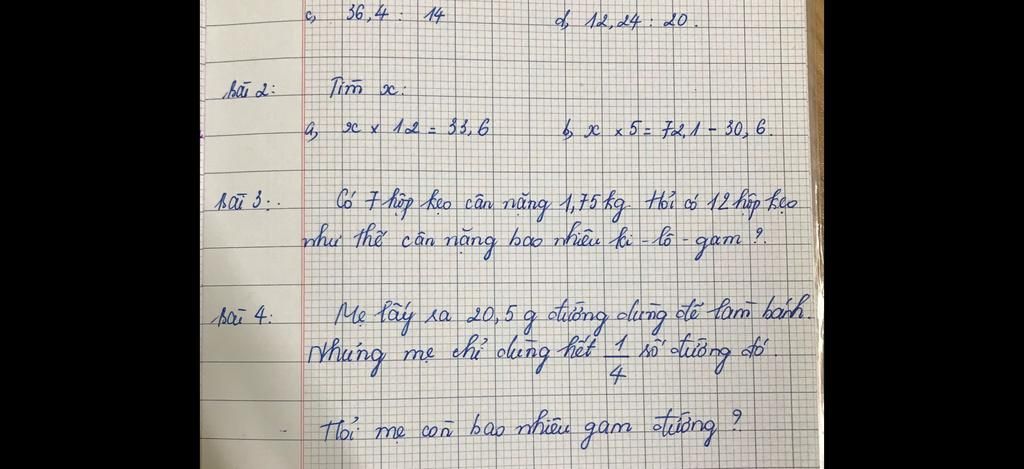 c, 36,4 : 14 d, 12,24 : 20.
Bài 2: Tìm x:
a, x × 12 = 33,6 b, x × 5 = 72,1 - 30,6.
Bài 3: Có 7 hộp kẹo cân nặng 1,75kg. Hỏi có 12 hộp kẹo
như thế cân nặng bao nhiêu ki-lô-gam?
Bài 4: Mẹ lấy ra 20,5 g đường dùng để làm bánh.
Nhưng mẹ chỉ dùng hết 1/4 số đường đó.
Hỏi mẹ còn bao nhiêu gam đường?